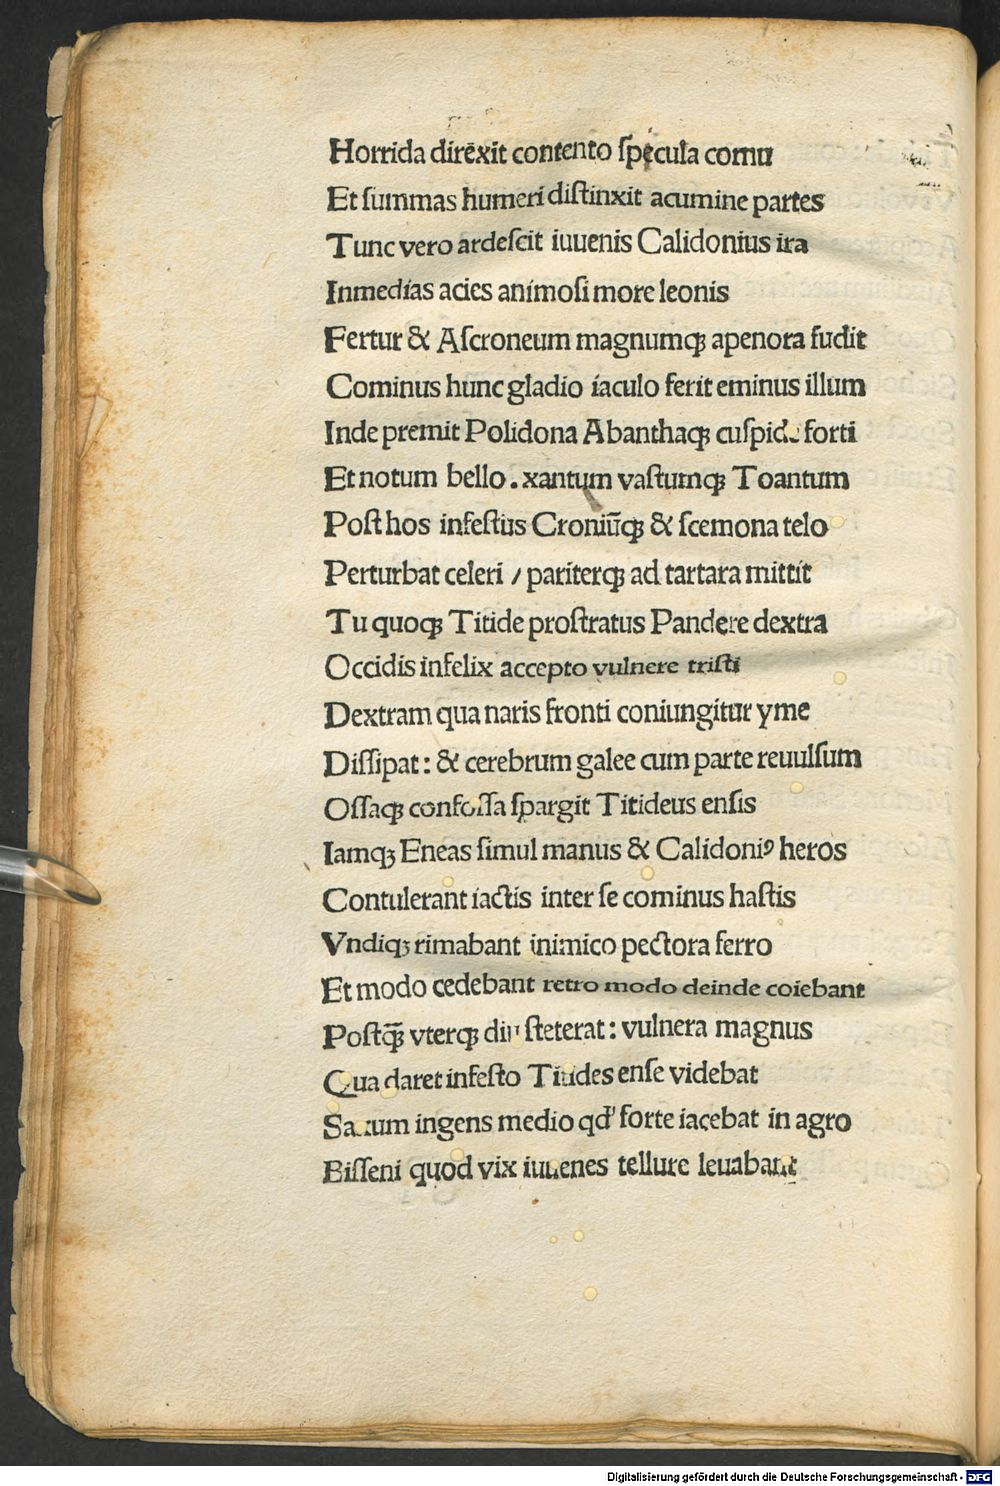 Horrida direxit contento spicula cornu
Et ſummas humeri diſtinxit acumine partes
Tunc vero ardeſcit iuuenis Calidonius ira
Inmedias acies animoſi more leonis
Fertur & Aſcroneum magnumqꝫ apenora fudit
Cominus hunc gladio iaculo ferit eminus illum
Inde premit Polidona Abanthaqꝫ cuſpide forti
Et notum bello . xantum vaſtumqꝫ Toantum
Poſt hos infeſtus Croniūqꝫ & ſcemona telo
Perturbat celeri / pariterqꝫ ad tartara mittit
Tu quoqꝫ Titide proſtratus Pandere dextra
Occidis infelix accepto vulnere triſti
Dextram qua naris fronti coniungitur yme
Diſſipat : & cerebrum galee cum parte reuulſum
Oſſaqꝫ confoſſa ſpargit Titideus enſis
Iamqꝫ Eneas ſimul manus & Calidoniꝰ heros
Contulerant iactis inter ſe cominus haſtis
Vndiqꝫ rimabant inimico pectora ferro
Et modo cedebant retro modo deinde coiebant
Poſtqꝫ̄ vterqꝫ diu ſteterat : vulnera magnus
Qua daret infeſto Titides enſe videbat
Saxum ingens medio qd' forte iacebat in agro
Biſſeni quod vix iuuenes tellure leuabant
Digitalisierung gefördert durch die Deutsche Forschungsgemeinschaft - DFG